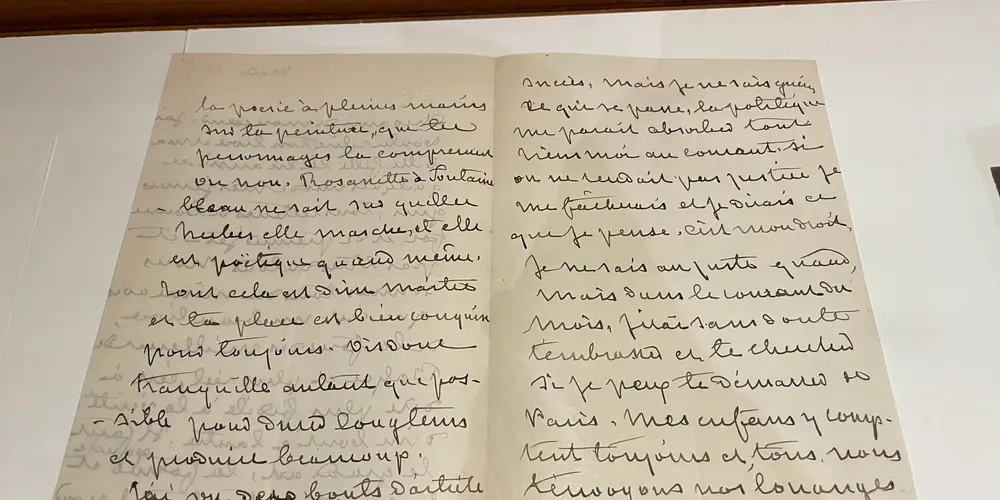 la poësie à pleines mains
sur ta peinture, que tes
personnages la comprennent
ou non. Rosanette à Fontaine
-bleau ne sait sur quelles
herbes elle marche, et elle
est poëtique quand même.
Tout cela est d'un maître
et ta place est bien conquise
pour toujours. Vis donc
tranquille autant que pos-
-sible pour durer longtems
et produire beaucoup.
J'ai vu deux bouts d'article
succès, mais je ne sais guère
ce qui se passe, la politique
me parait absorber tout
tiens moi au courant. Si
on ne rendait pas justice je
me fâcherais et je dirais ce
que je pense. c'est mon droit.
Je ne sais au juste quand,
mais dans le courant du
mois, j'irai sans doute
t'embrasser et te chercher
si je peux te démarrer de
Paris. Mes enfans y comp-
tent toujours et, tous, nous
t'envoyons nos louanges